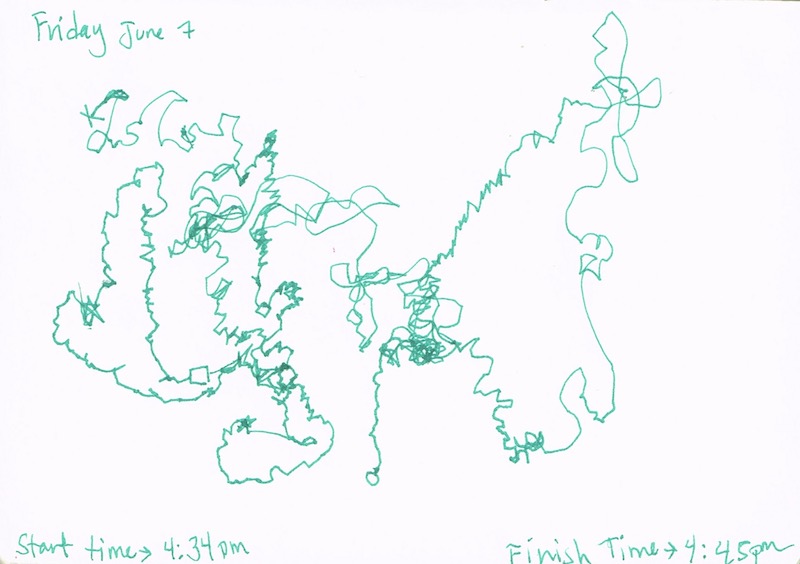 Friday June 7
Start time → 4:34pm
Finish Time → 4:45pm